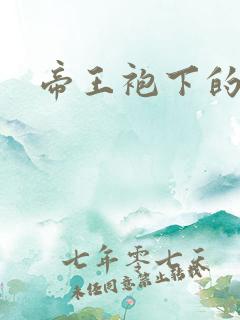 帝王袍下的
七年零七天
未经同意禁止转载